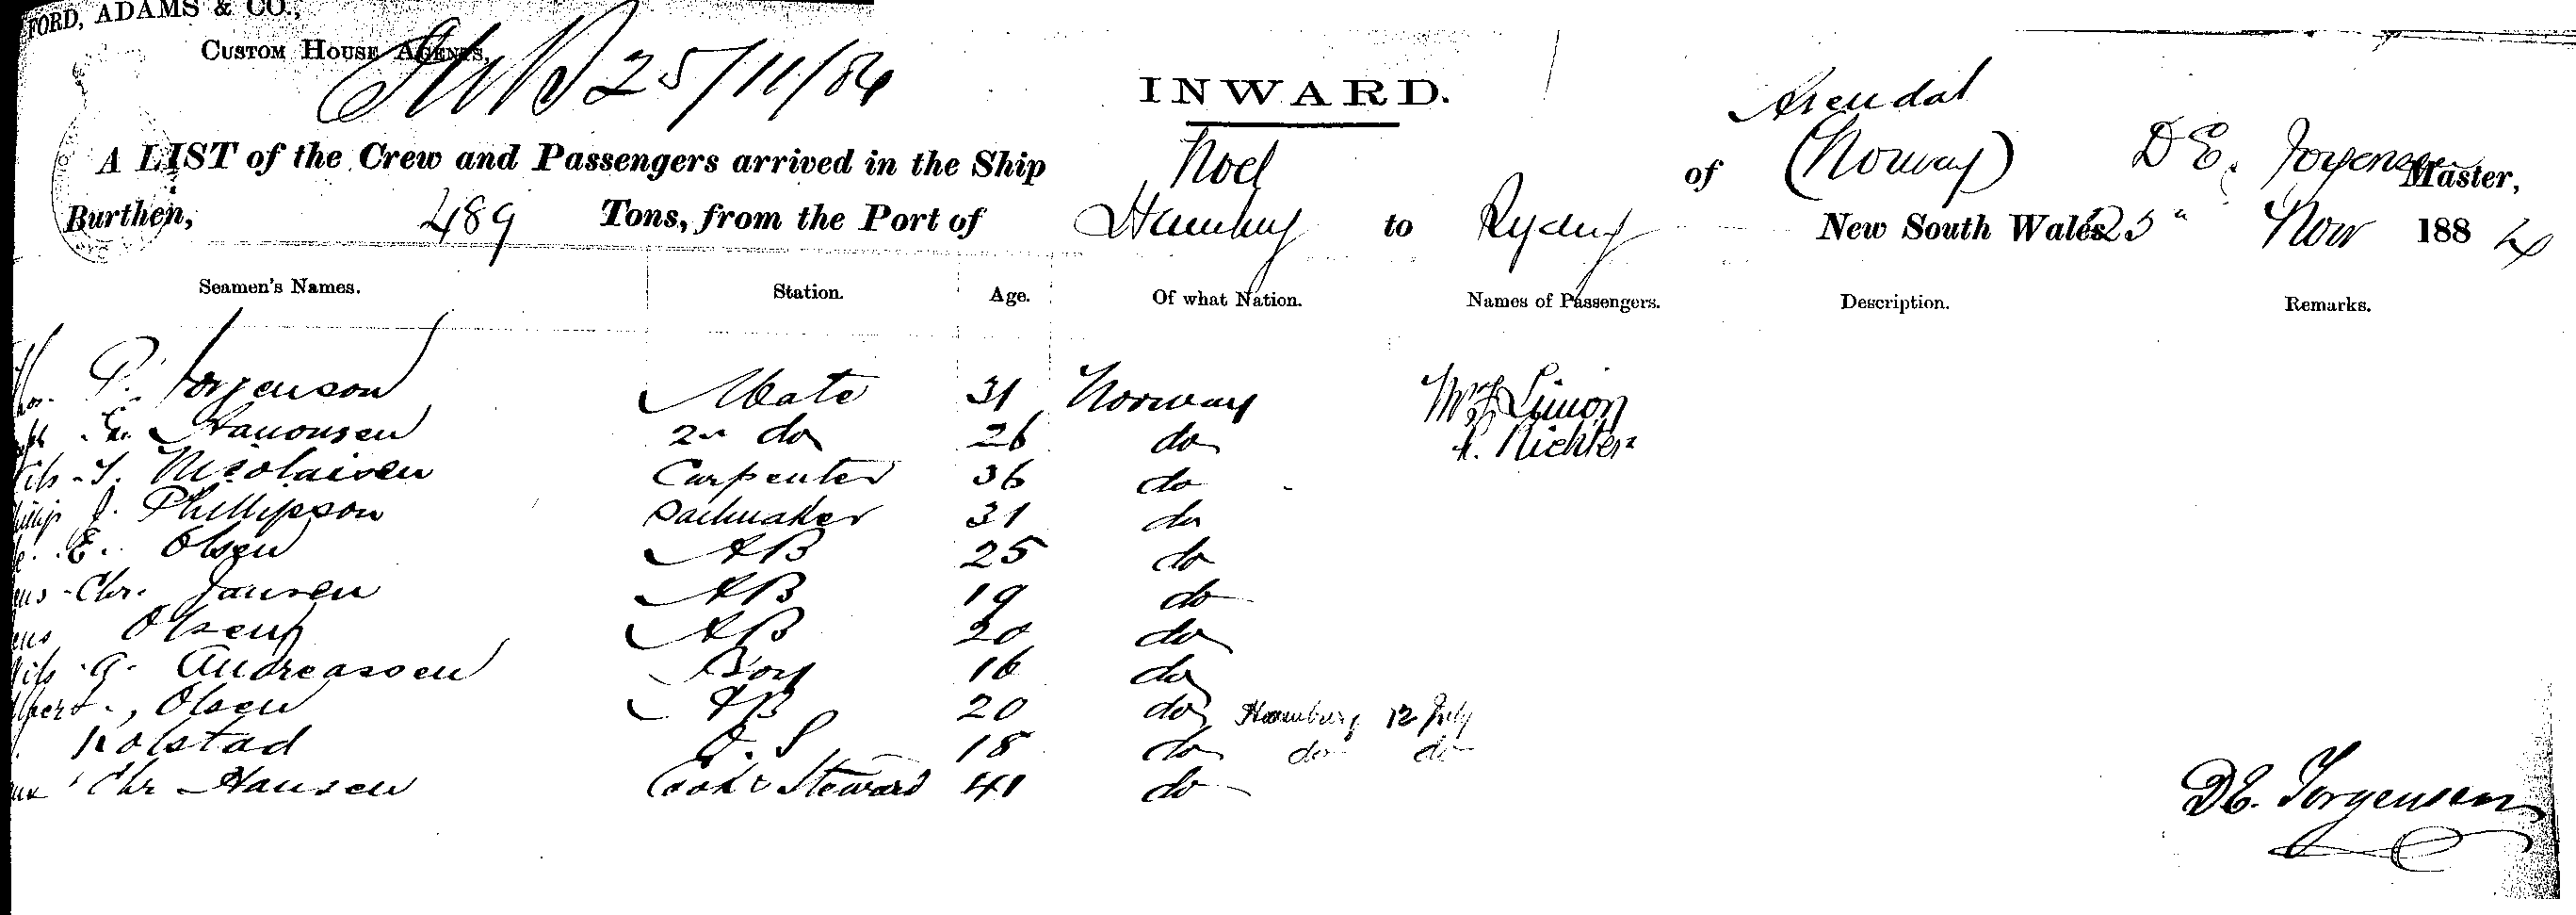 FORD, ADAMS & CO.,
CUSTOM HOUSE AGENTS,
25/11/84
INWARD.
A LIST of the Crew and Passengers arrived in the Ship Noel of Arendal (Norway) D E. Jorgensen Master,
Burthen, 489 Tons, from the Port of Hamburg to Sydney New South Wales 25" Nov 1884
Seamen's Names. Station. Age. Of what Nation. Names of Passengers. Description. Remarks.
P. Jorgenson Mate 31 Norway Simon
2nd do 26 do Richter
Nicolaisen Carpenter 36 do
J. Phillipson Sailmaker 31 do
E. Olsen AB 25 do
Chr. Jansen AB 19 do
Olsen AB 20 do
A. Andreassen Boy 16 do
Olsen AB 20 do Hamburg 12 July
Kolstad O.S 18 do do do
Chr Hansen Cook & Steward 41 do
DE. Jorgensen